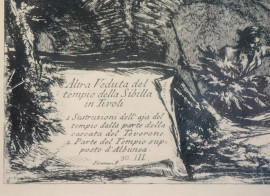 Altra Veduta del
tempio della Sibilla
in Tivoli
1. Sustruzioni dell' aja del
tempio dalla parte della
cascata del Teverone.
2. Parte del Tempio sup-
posto d'Albunea